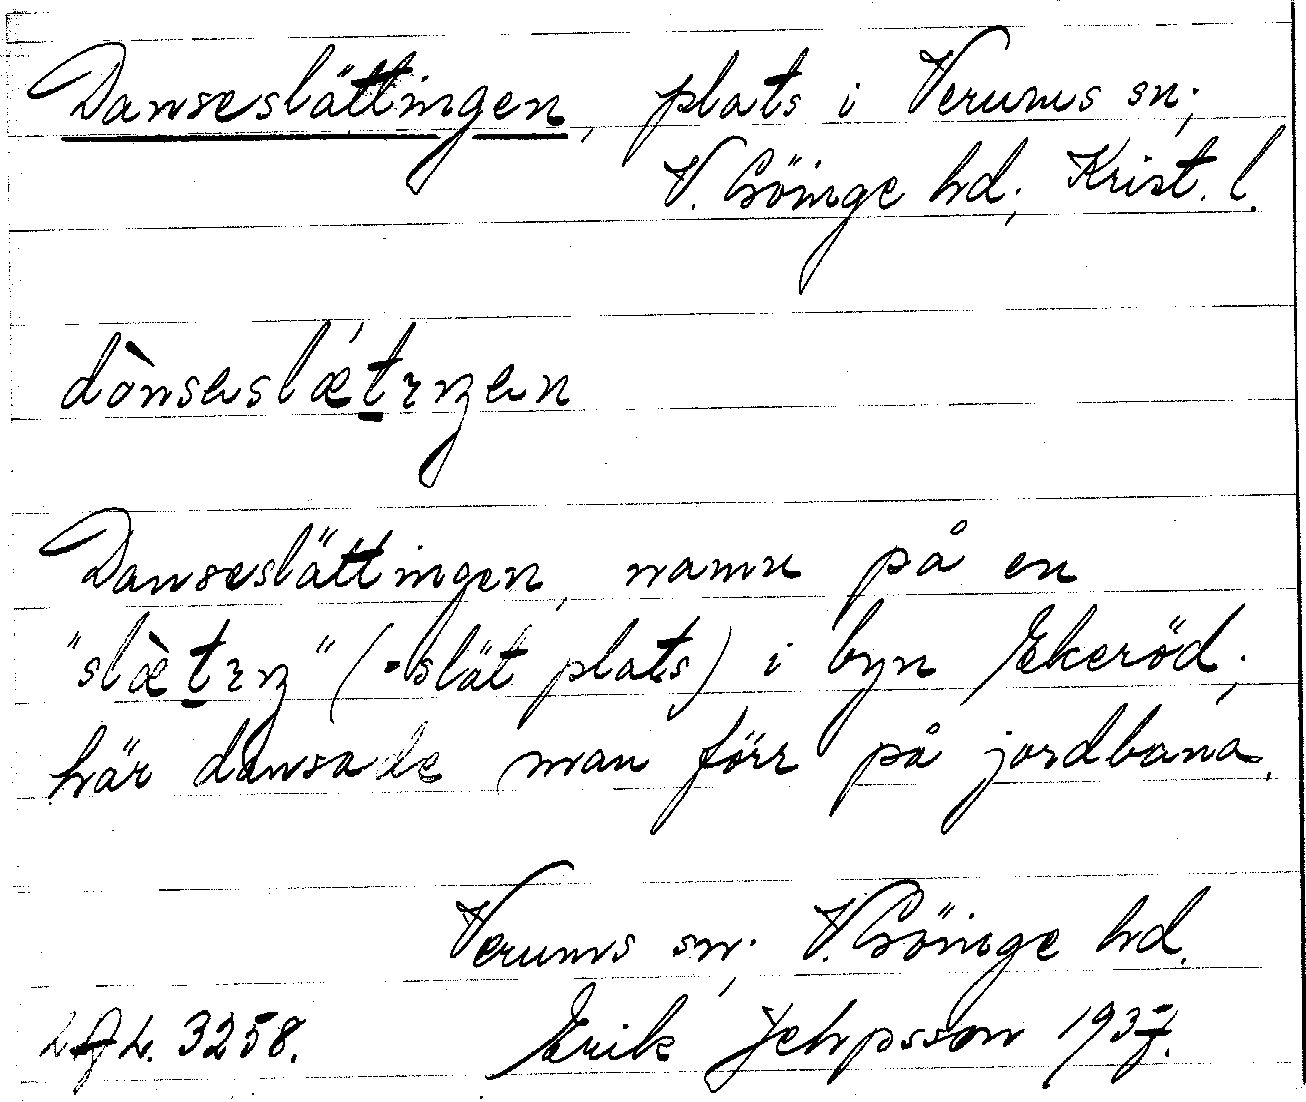 Danseslättingen, plats i Verums sn;
V. Göinge hd; Krist. l.
dònseslǽtıŋen
Danseslättingen, namn på en
"slæ̀tıŋ" (= slät plats) i byn Ekeröd;
här dansade man förr på jordbana.
Verums sn; V. Göinge hd.
LAL. 3258. Erik Jehpsson 1937.